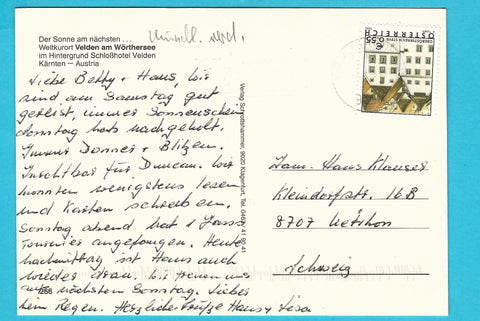 Der Sonne am nächsten ...
Weltkurort Velden am Wörthersee
im Hintergrund Schloßhotel Velden
Kärnten – Austria
Liebe Betty + Hans, wir
sind am Samstag gut
gereist, immer Sonnenschein
hats nachgeholt.
Immer Donner + Blitzen.
Furchtbar für Duncan. Wir
konnten wenigstens lesen
und Karten schreiben.
Sonntag abend hat 1 Jass
Tournier angefangen. Heute
nachmittag ist Hans auch
wieder dran. Wir freuen uns
nächsten Sonntag. Lieber
kein Regen. Herzliche Grüsse Hans + Lisa
Verlag Schrottshammer, 9020 Klagenfurt, Tel. 0463/ 41 90 41
ÖSTERREICH
0,55
Fam. Hans Klauser
Kleindorfstr. 16B
8707 Uetikon
Schweiz